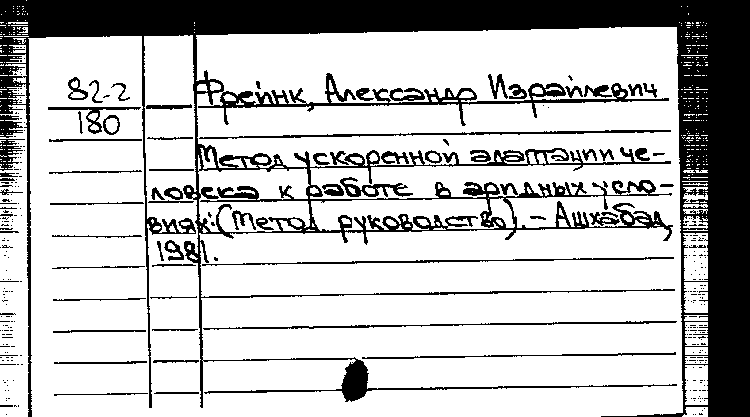 82-2
180
Фрейнк, Александр Израйлевич
Метод ускоренной адаптации че-
ловека к работе в аридных усло-
виях: (Метод. руководство). - Ашхабад,
1981.